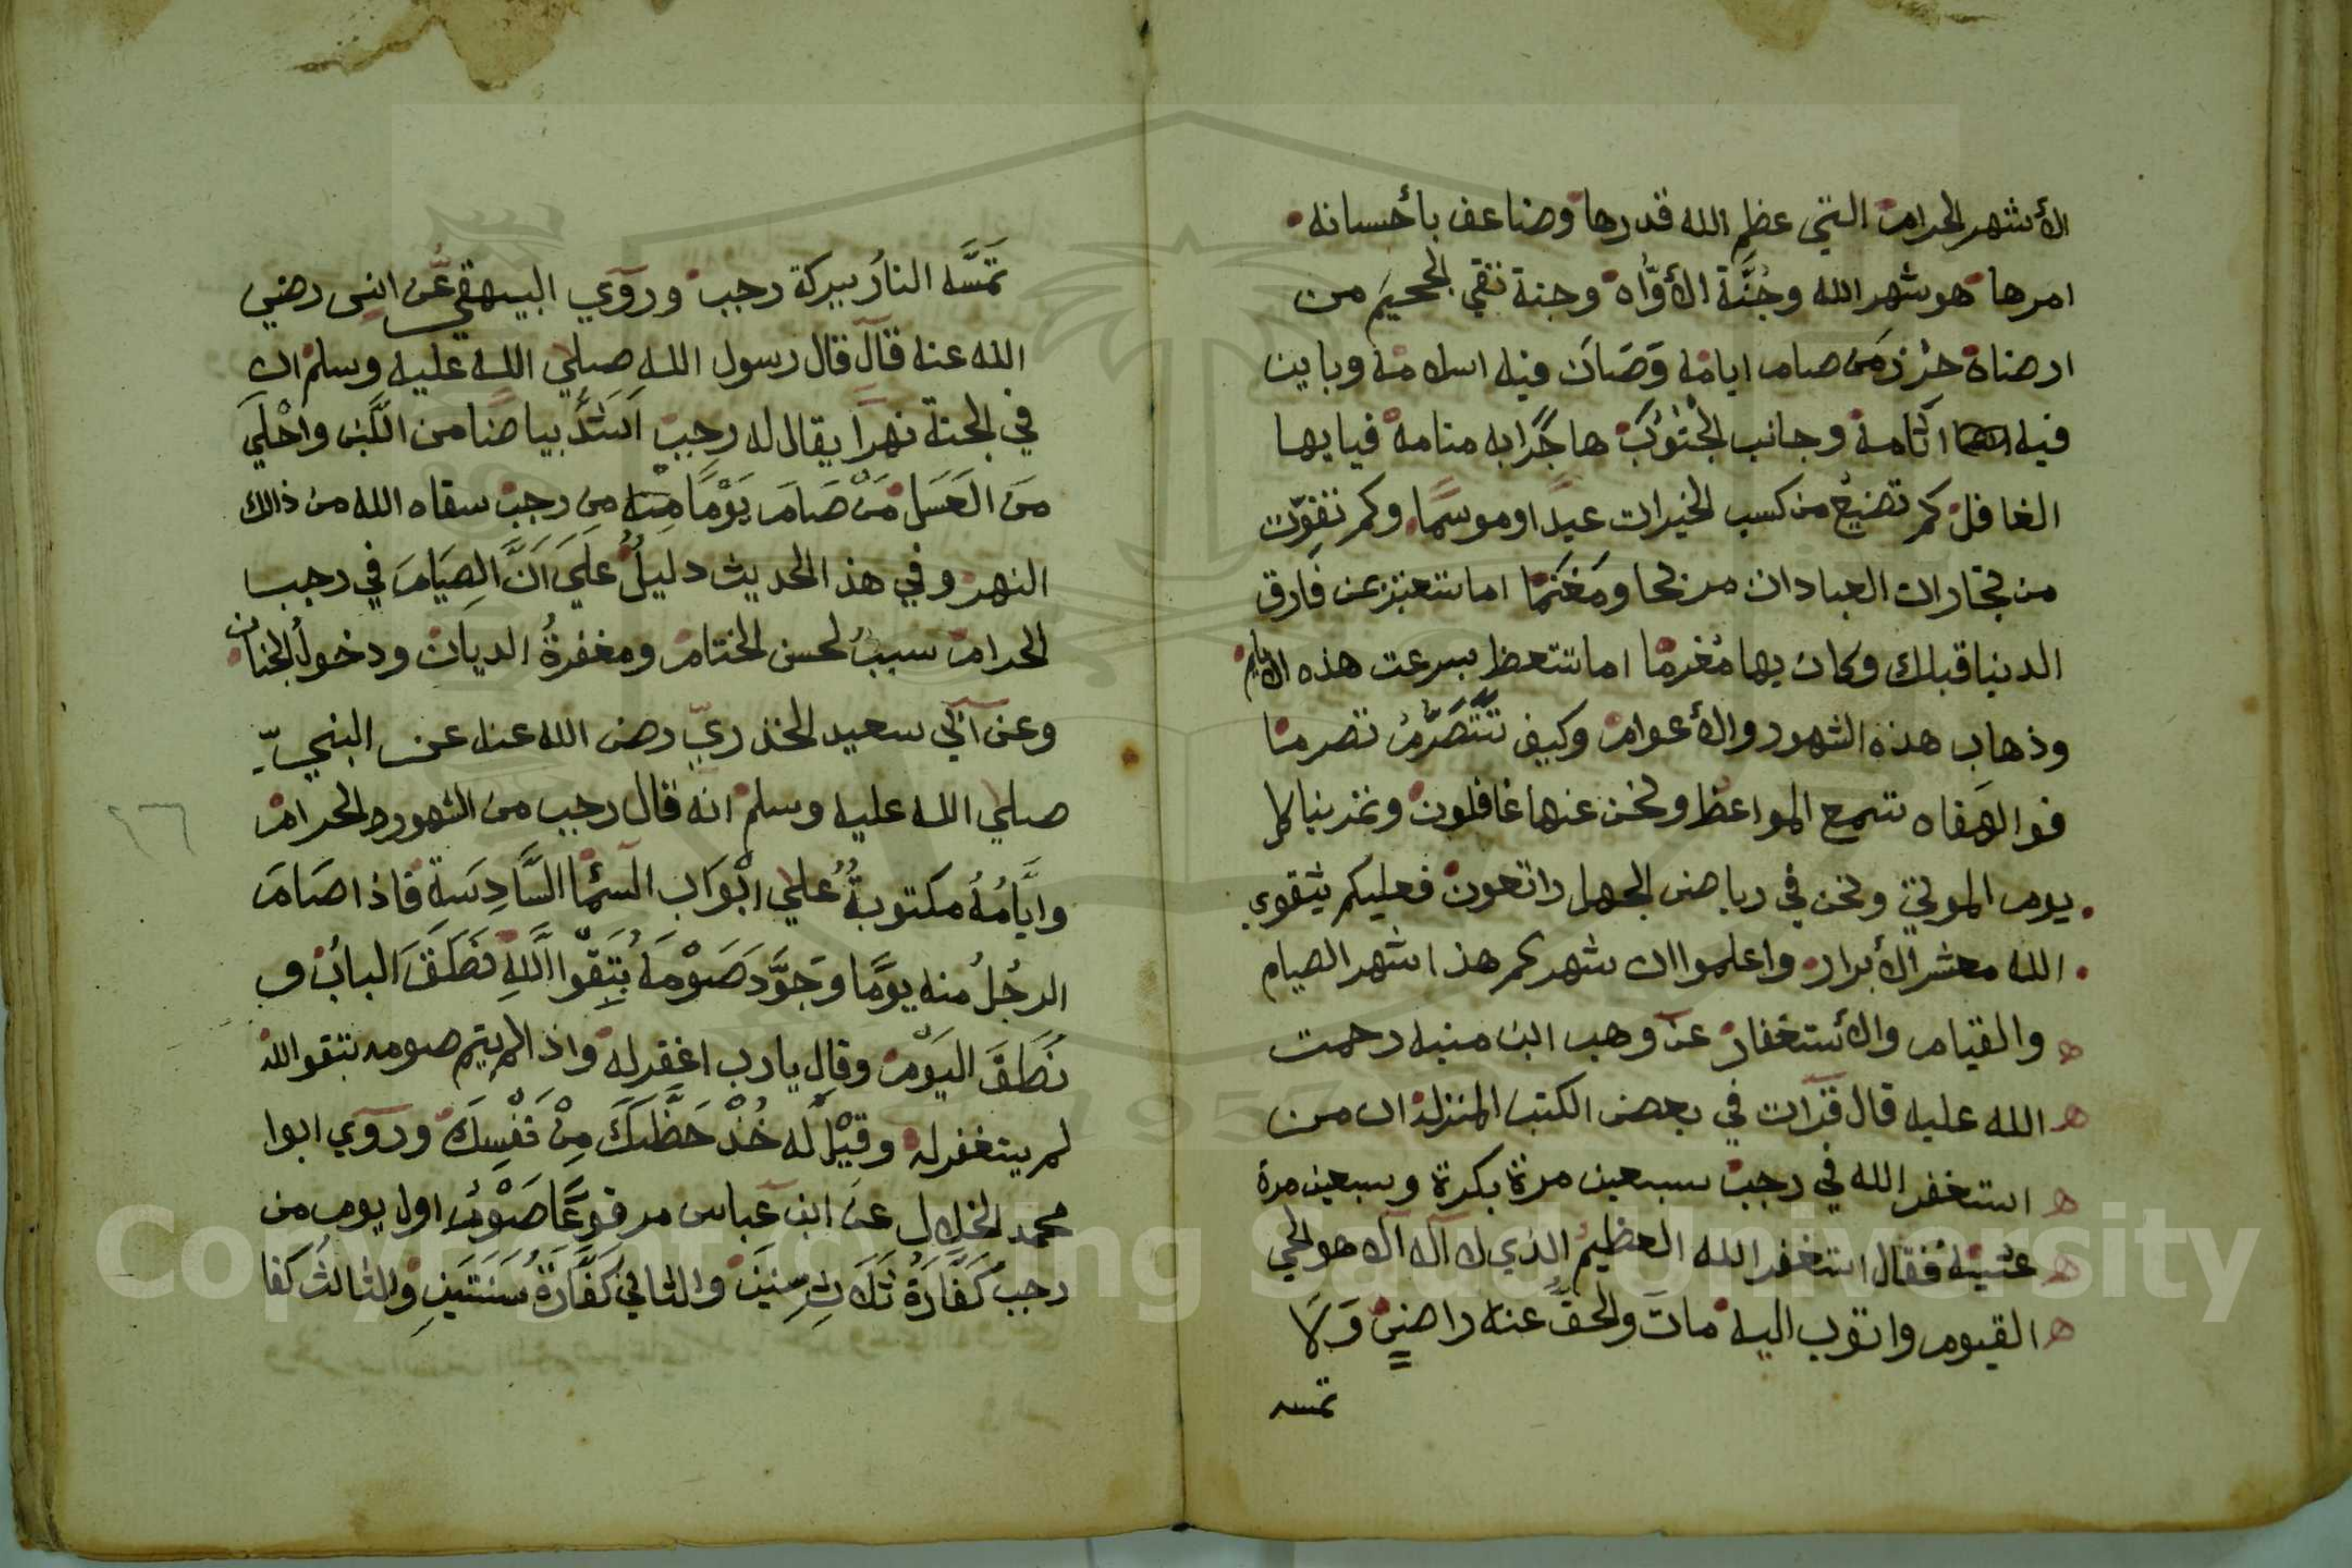 الأشهر الحرام التي عظم الله قدرها وضاعف بأحسانه
امرها هو شهر الله وجُنَّة الأوّاه وجنة تقي الجحيم من
ارضاه حرز من صام ايامه وَصَان فيه اسلامه وباين
فيه اثامه وجانب الجُنُوب هاجرًا به منامه فيا ايها
الغافل كم تضيع من كسب الخيرات عيدا وموسمًا وكم تفوّت
من تجارات العبادات مربحا ومَغنَمًا اما تتعتبر بمن فارق
الدنيا قبلك وكان بها مُغرمًا اما تتعظ بسرعت هذه الايام
وذهاب هذه الشهور والأعوام وكيف تَتَصَرَّمُ تصرما
فوا لهفاه تسمع المواعظ ونحن عنها غافلون وتمر بنا كل
يوم الموتي ونحن في رياض الجهل راتعون فعليكم بتقوي
الله معشر الأبرار واعلموا ان شهركم هذا شهر الصيام
والقيام والأستغفار عن وهب ابن منبه رحمت
الله عليه قال قرات في بعض الكتب المنزلة ان من
استغفر الله في رجب سبعين مرة بكرة وسبعين مرة
عشية فقال استغفر الله العظيم الذي لا آله آلا هو الحي
القيوم واتوب اليه مات والحق عنه راضيٍ وَلَا
تمسه
تمَسَّه النارُ ببركة رجب وروَي البيهقي عن انس رضي
الله عنه قال قال رسول الله صلي الله عليه وسلم ان
في الجنة نهرا يقال له رجب اَشدُّ بياضًا من اللَّبن واحْلَي
مِنَ العَسَل مَنْ صَامَ يَوْمًا مِن رجب سقاه الله من ذالك
النهر وفي هذ الحديث دليلٌ علَي اَنَّ الصِيَامَ في رجب
الحرام سببٌ لحسن الختام ومغفرةُ الديان ودخولُ الجنان
وعن آبي سعيد الخذريّ رضي الله عنه عن النبيّ
صلي الله عليه وسلم انه قال رجب من الشهور الحرام
وايَّامُهُ مكتوبةٌ علي ابْوَاب السَّمَا السَّادِسَةِ فاذا صَامَ
الرجُلُ منه يومًا وَجَوَّد صَوْمَهُ بِتَقْوا اللَّهِ نَطَقَ البابُ و
نَطَقَ اليَوْم وقال يارب اغفر له واذا لم يتم صومه بتقوا الله
لم يتغفر له وقِيْل له خُذْ حَظَّكَ مِنْ نَفْسِكَ وروي ابوا
محمد الخلال عن ابن عباس مرفوعًا صَوْمُ اول يوم من
رجب كَفَّارَةُ ثَلَاثِ سِنِيَن والثاني كَفَّارَةُ سَنَتَيِن والثالثُ كفا
Copyright © King Saud University
1957